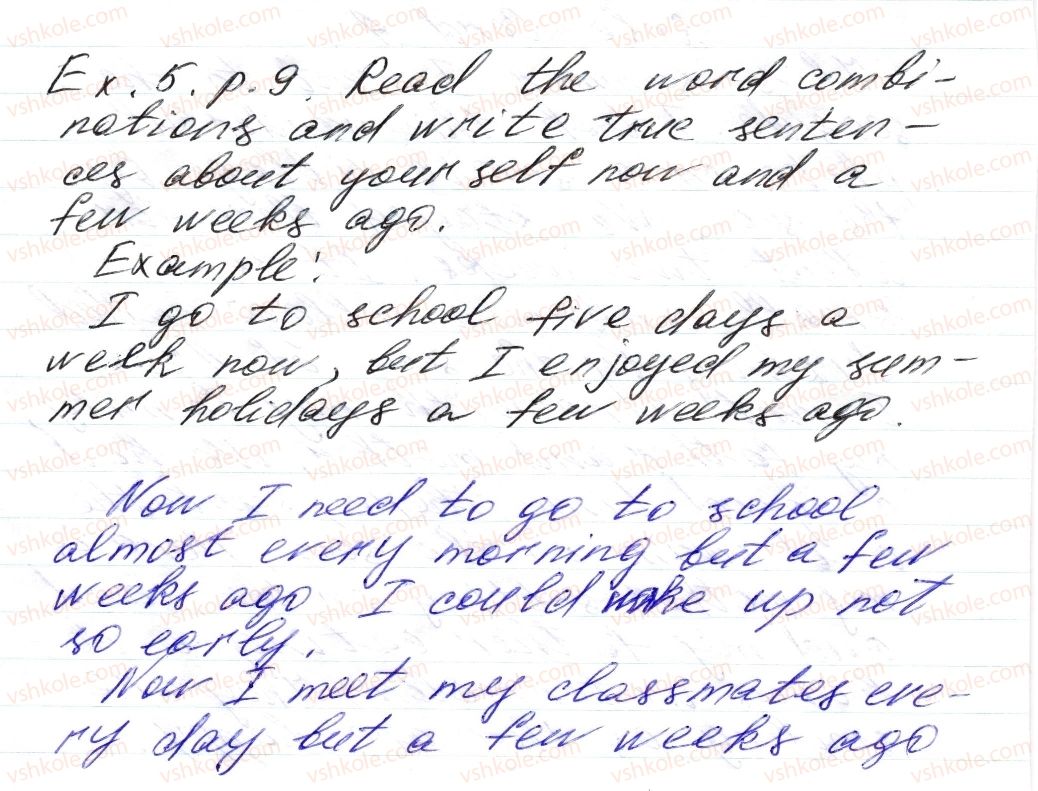 Ex. 5. p. 9. Read the word combi-
nations and write true senten-
ces about yourself now and a
few weeks ago.
Example:
I go to school five days a
week now, but I enjoyed my sum-
mer holidays a few weeks ago.
Now I need to go to school
almost every morning but a few
weeks ago I could wake up not
so early.
Now I meet my classmates eve-
ry day but a few weeks ago